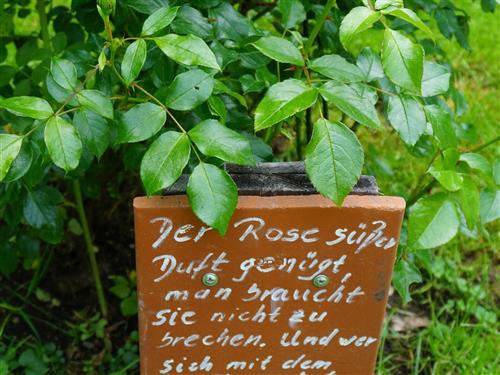 Der Rose süßer
Duft genügt,
man braucht
sie nicht zu
brechen. Und wer
sich mit dem